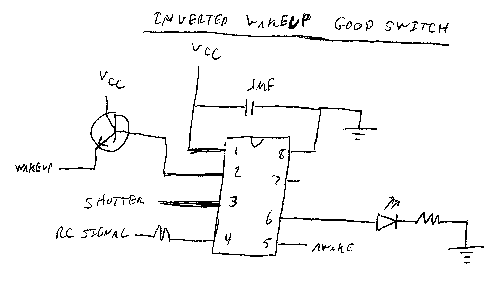 INVERTED WAKEUP GOOD SWITCH
VCC
VCC
.1MF
1
8
2
7
WAKEUP
SHUTTER
3
6
RC SIGNAL
4
5
AWAKE